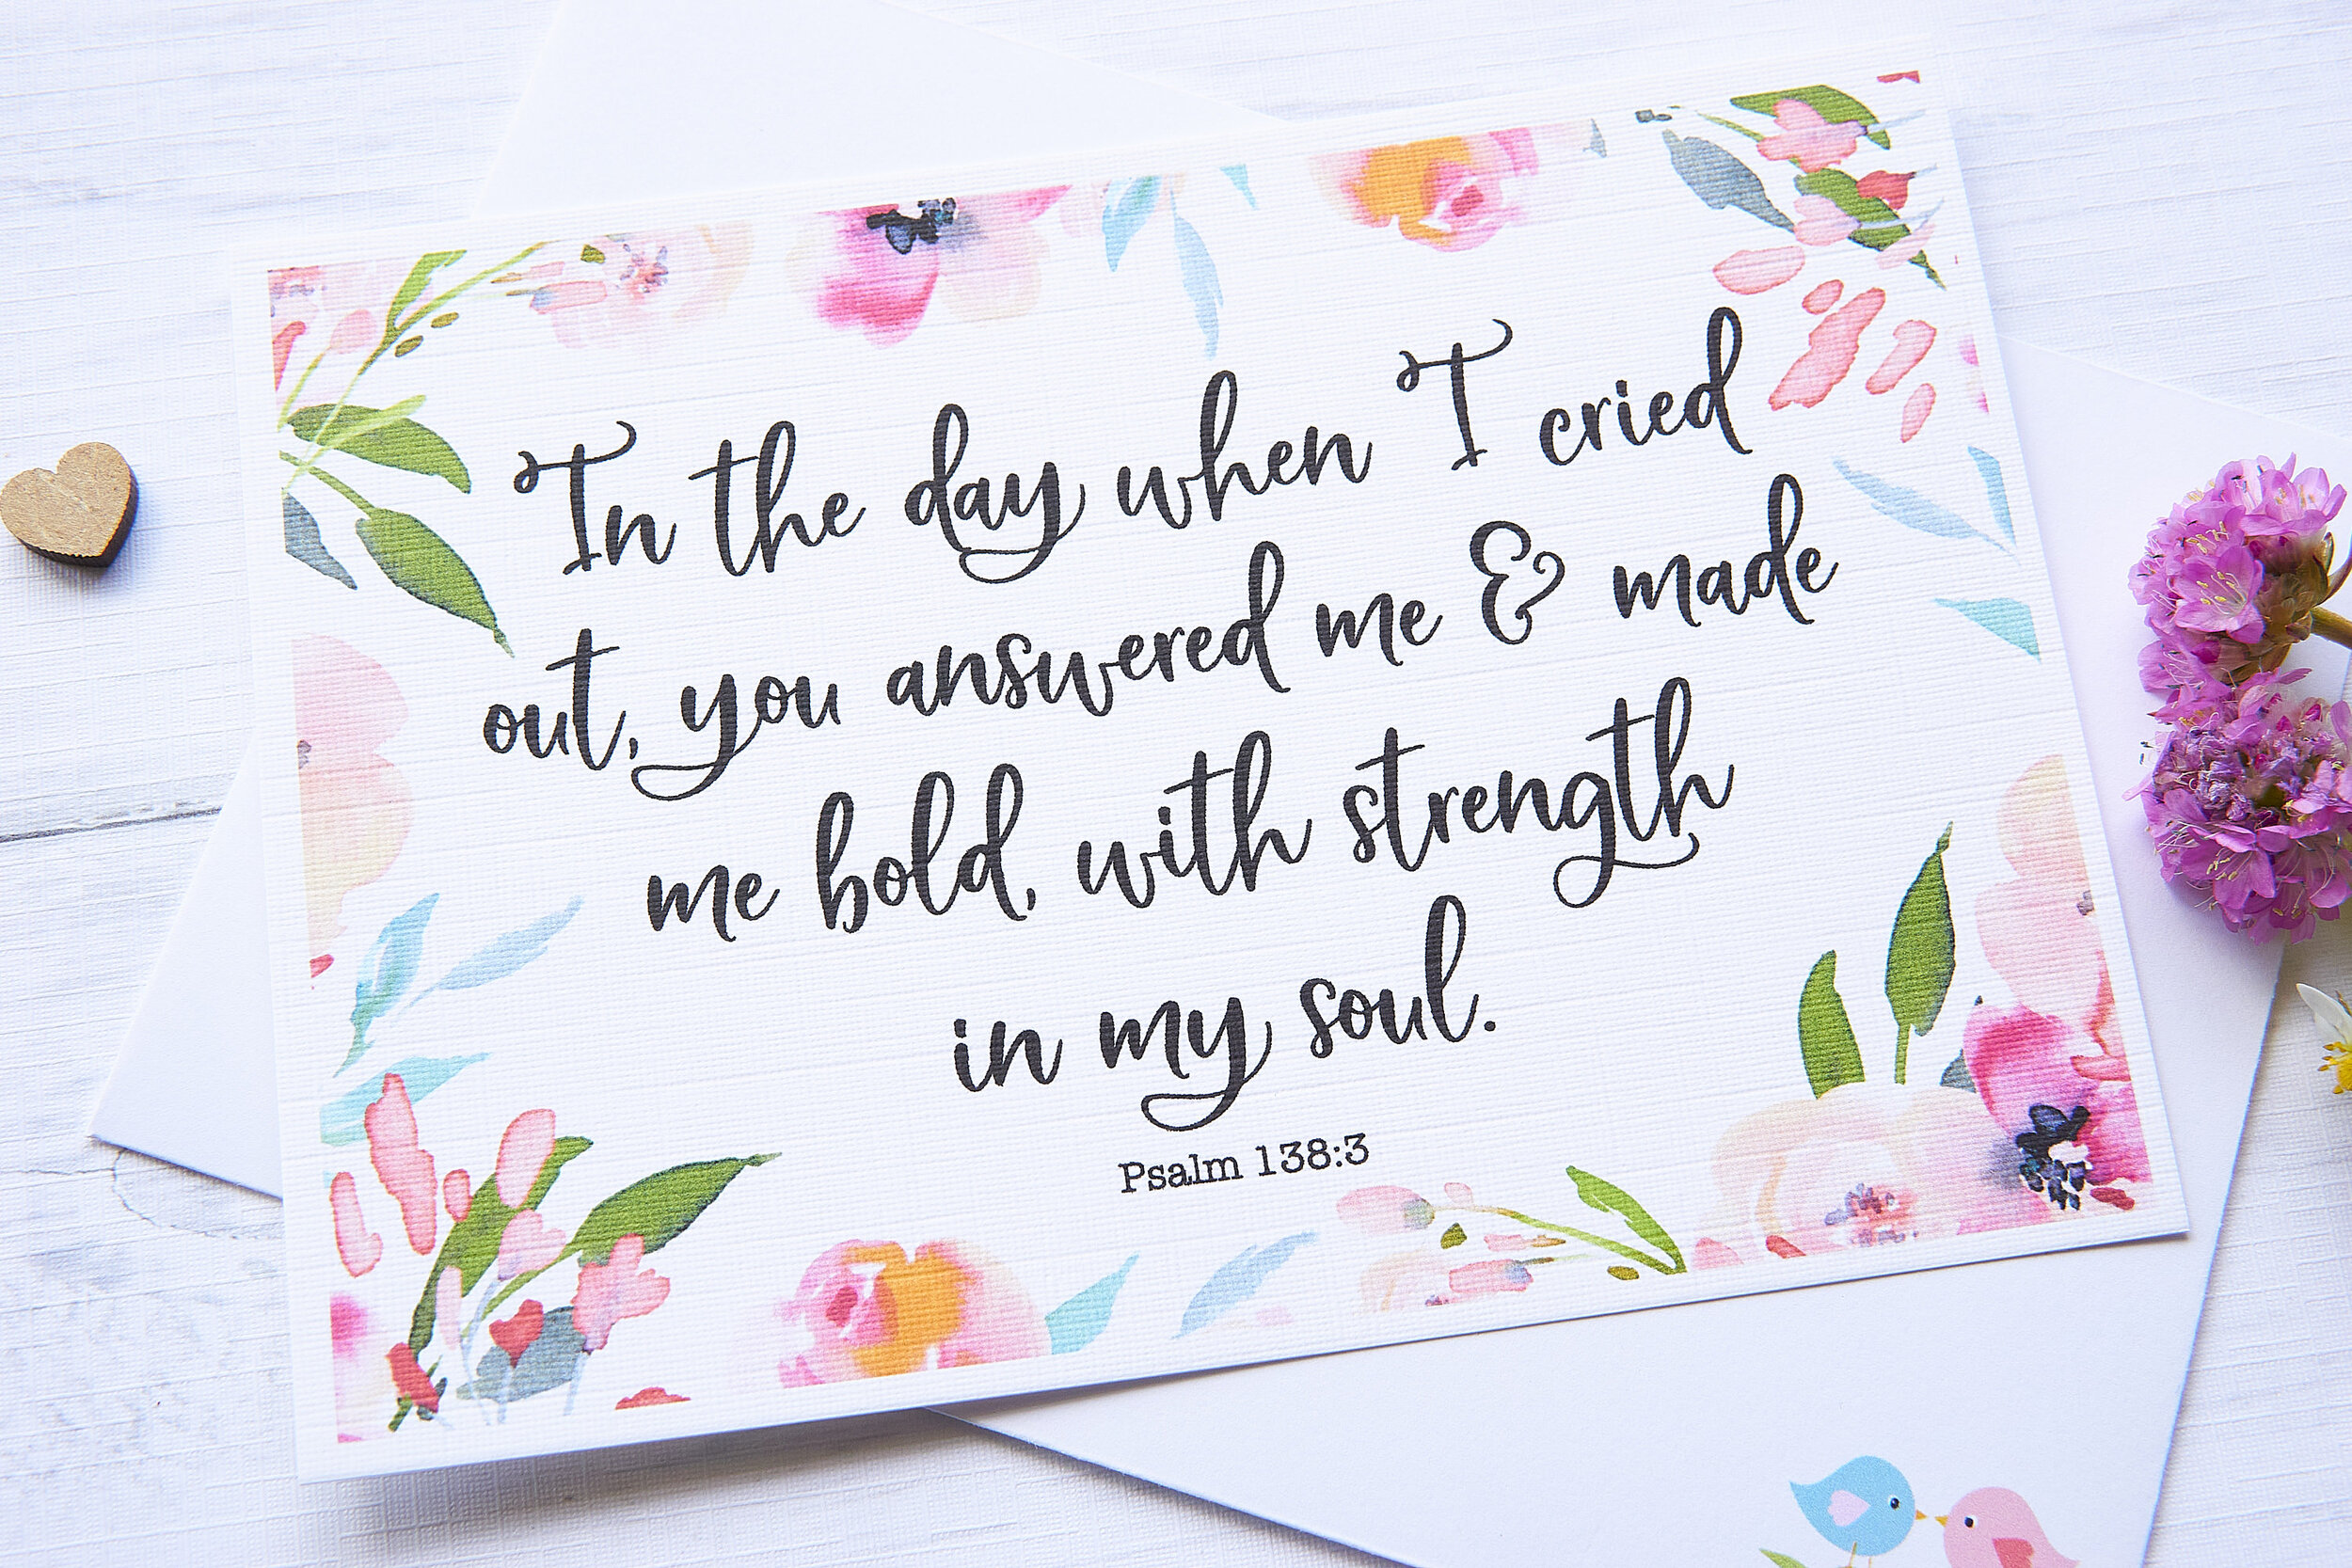 In the day when I cried
out, you answered me & made
me bold, with strength
in my soul.
Psalm 138:3